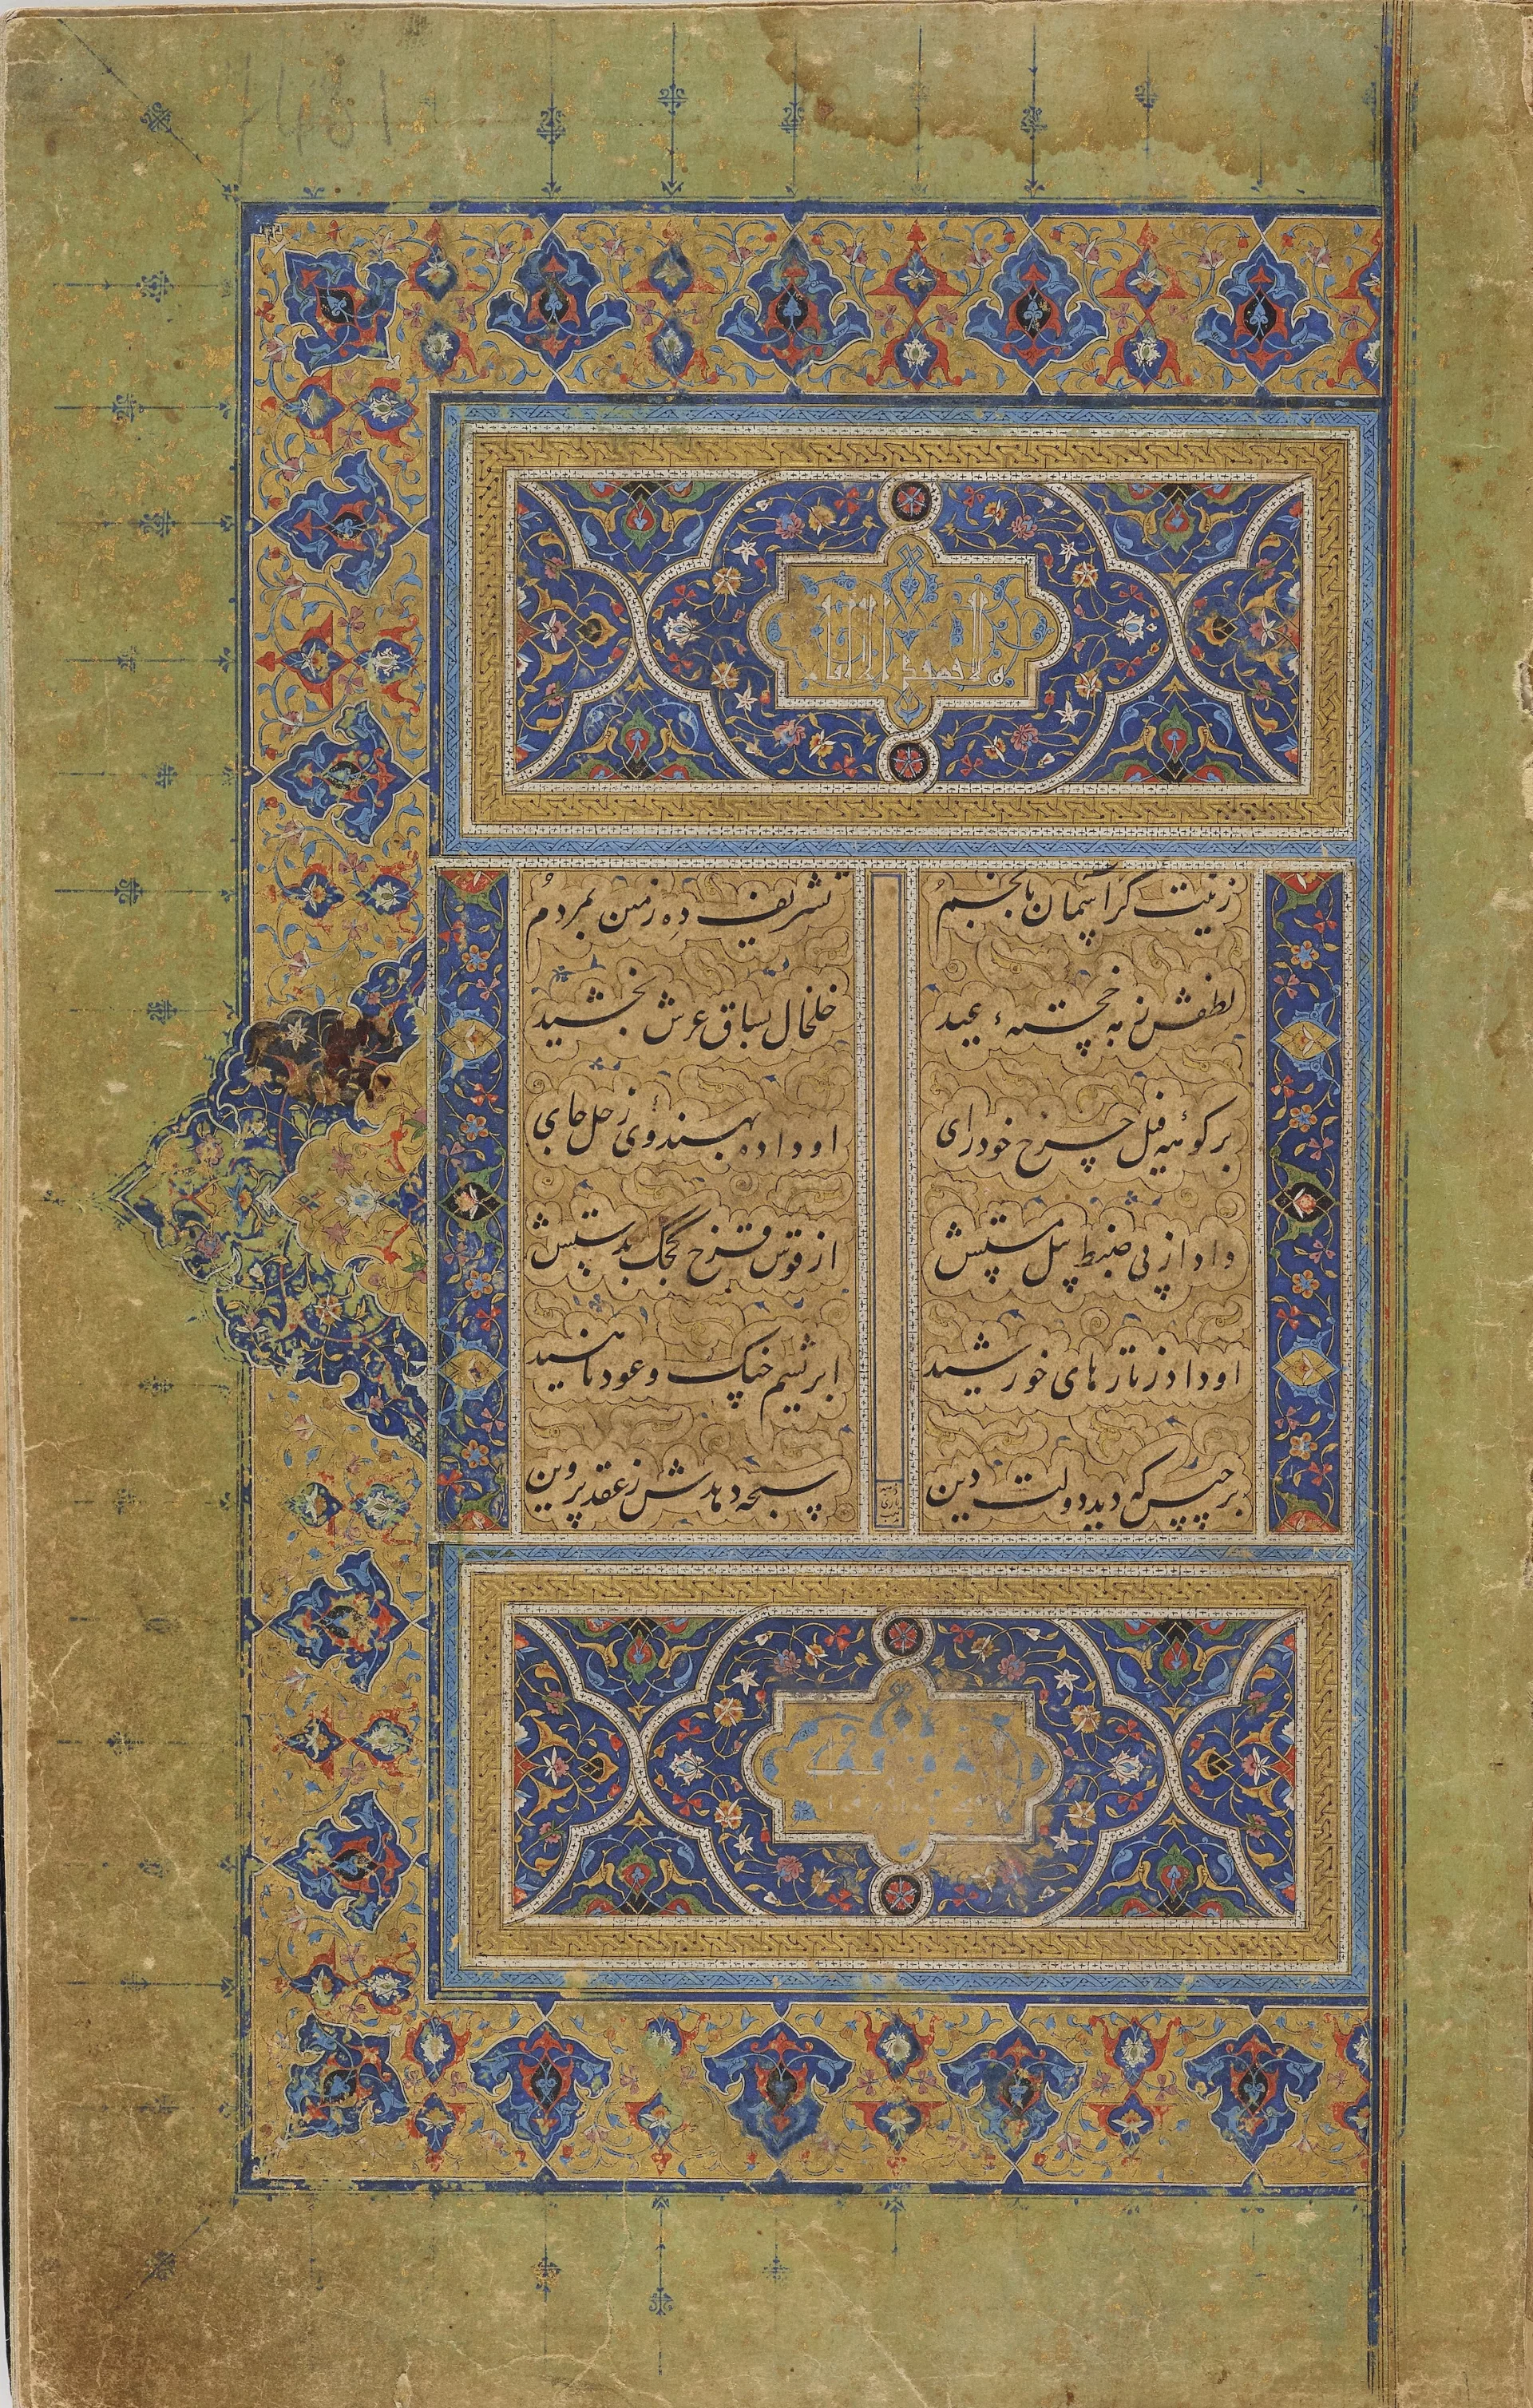 زینت گر آسمان بانجم تشریف ده زمین بمردم
لطفش خلخال بساق عرش بخشید
بر کوههٔ فیل چرخ خودرای او داده بهندوی زحل جای
داد از پی ضبط پیل مستش از قوس قزح کجک بدستش
او داد ز تارهای خورشید ابریشم چنگ و عود ناهید
برجیس که دید دولت دین سبحه دهدش ز عقد پروین